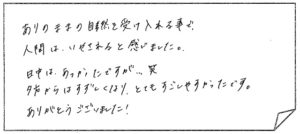 ありのままの自然を受け入れる事で、
人間は、いやされると感じました。
日中は、あつかったですが、、笑
夕方からはすずしくなり、とてもすごしやすかったです。
ありがとうございました!